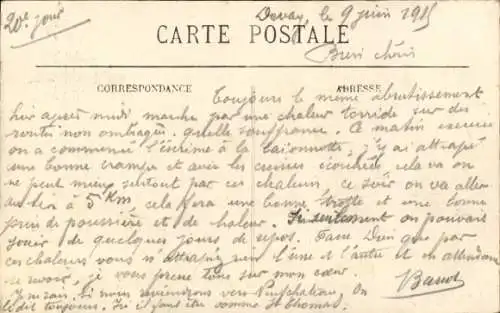 20e jour
Douay, le 9 juin 1915
CARTE POSTALE
Bien chéri
CORRESPONDANCE
ADRESSE
Toujours le même abrutissement
hier après midi marche par une chaleur torride sur des
routes non ombragées. quelle souffrance. Ce matin exercice
on a commencé l'escrime à la baïonnette, j'y ai attrapé
une bonne crampe et avec les cuisses écorchées cela va on
ne peut mieux surtout par ces chaleurs. ce soir on va aller
au tir à 5 Km cela fera une bonne trotte et une bonne
prise de poussière et de chaleur. Si seulement on pouvait
jouir de quelques jours de repos. Fasse Dieu que par
ces chaleurs vous n'attrapiez rien l'une et l'autre et en attendant
se revoir, je vous presse tous sur mon cœur.
Je ne sais si nous reviendrons vers Neufchateau. On
le dit toujours. Ici il faut être comme St Thomas.